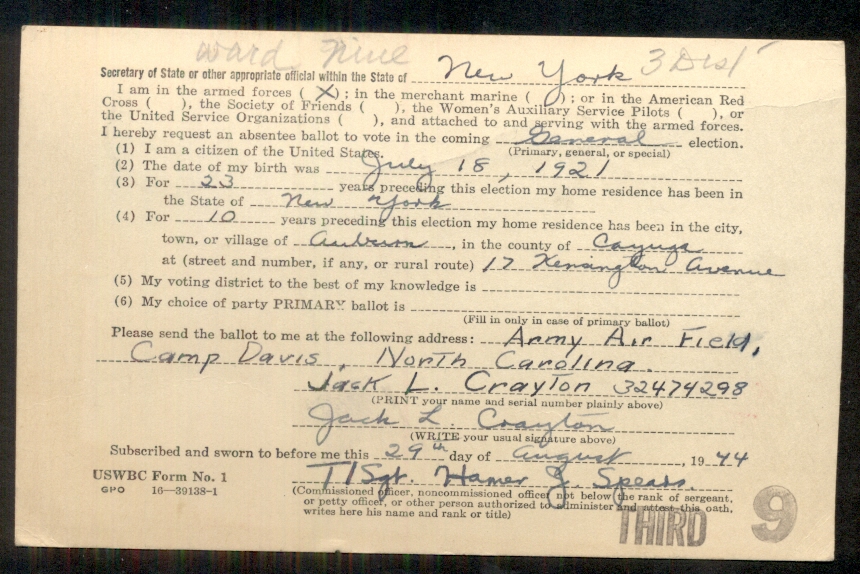 ward nine
Secretary of State or other appropriate official within the State of New York 3 Dist
I am in the armed forces ( X ); in the merchant marine ( ); or in the American Red
Cross ( ), the Society of Friends ( ), the Women's Auxiliary Service Pilots ( ), or
the United Service Organizations ( ), and attached to and serving with the armed forces.
I hereby request an absentee ballot to vote in the coming General election.
(Primary, general, or special)
(1) I am a citizen of the United States.
(2) The date of my birth was July 18, 1921
(3) For 23 years preceding this election my home residence has been in
the State of New York
(4) For 10 years preceding this election my home residence has been in the city,
town, or village of Auburn, in the county of Cayuga
at (street and number, if any, or rural route) 17 Kensington Avenue
(5) My voting district to the best of my knowledge is
(6) My choice of party PRIMARY ballot is
(Fill in only in case of primary ballot)
Please send the ballot to me at the following address: Army Air Field,
Camp Davis, North Carolina.
Jack L. Crayton 32474298
(PRINT your name and serial number plainly above)
Jack L. Crayton
(WRITE your usual signature above)
Subscribed and sworn to before me this 29th day of August, 1944
USWBC Form No. 1 T/Sgt. Homer J. Spears.
GPO 16—39138-1 (Commissioned officer, noncommissioned officer not below the rank of sergeant,
or petty officer, or other person authorized to administer and attest this oath,
writes here his name and rank or title)
THIRD 9